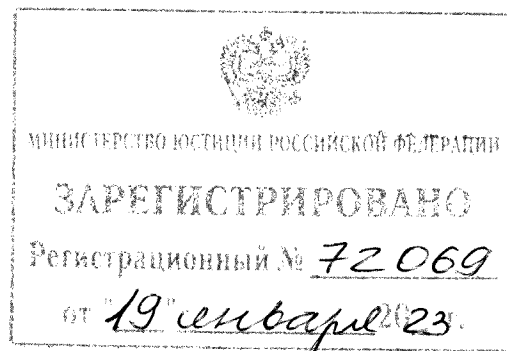 МИНИСТЕРСТВО ЮСТИЦИИ РОССИЙСКОЙ ФЕДЕРАЦИИ
ЗАРЕГИСТРИРОВАНО
Регистрационный № 72069
от "19" января 2023 г.